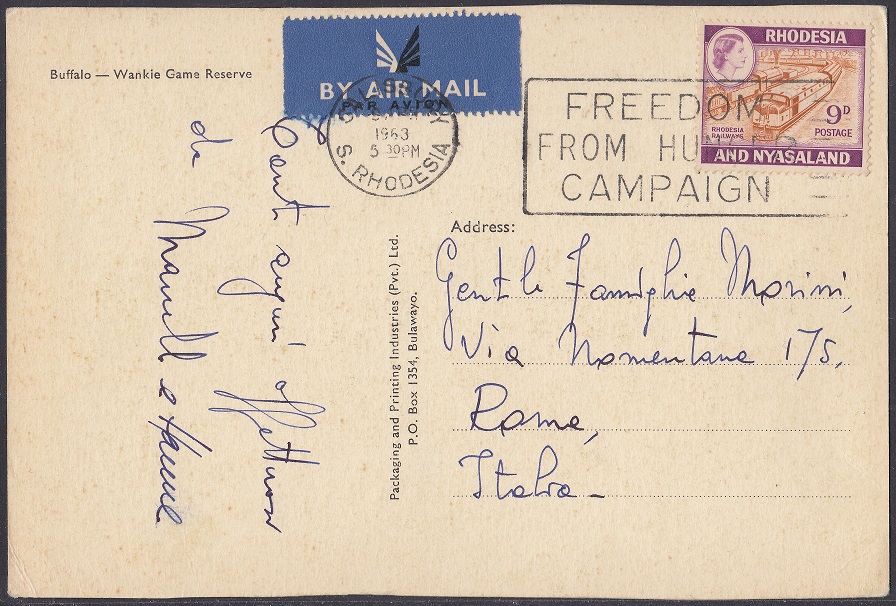 Buffalo — Wankie Game Reserve
BY AIR MAIL
PAR AVION
1963
5 30PM
S. RHODESIA
FREEDOM
FROM HUNGER
CAMPAIGN
RHODESIA
RHODESIA
RAILWAYS
9D
POSTAGE
AND NYASALAND
Tanti auguri affettuosi
da
Address:
Gentile Famiglia Morini,
Via Nomentana 175,
Roma,
Italia -
Packaging and Printing Industries (Pvt.) Ltd.
P.O. Box 1354, Bulawayo.